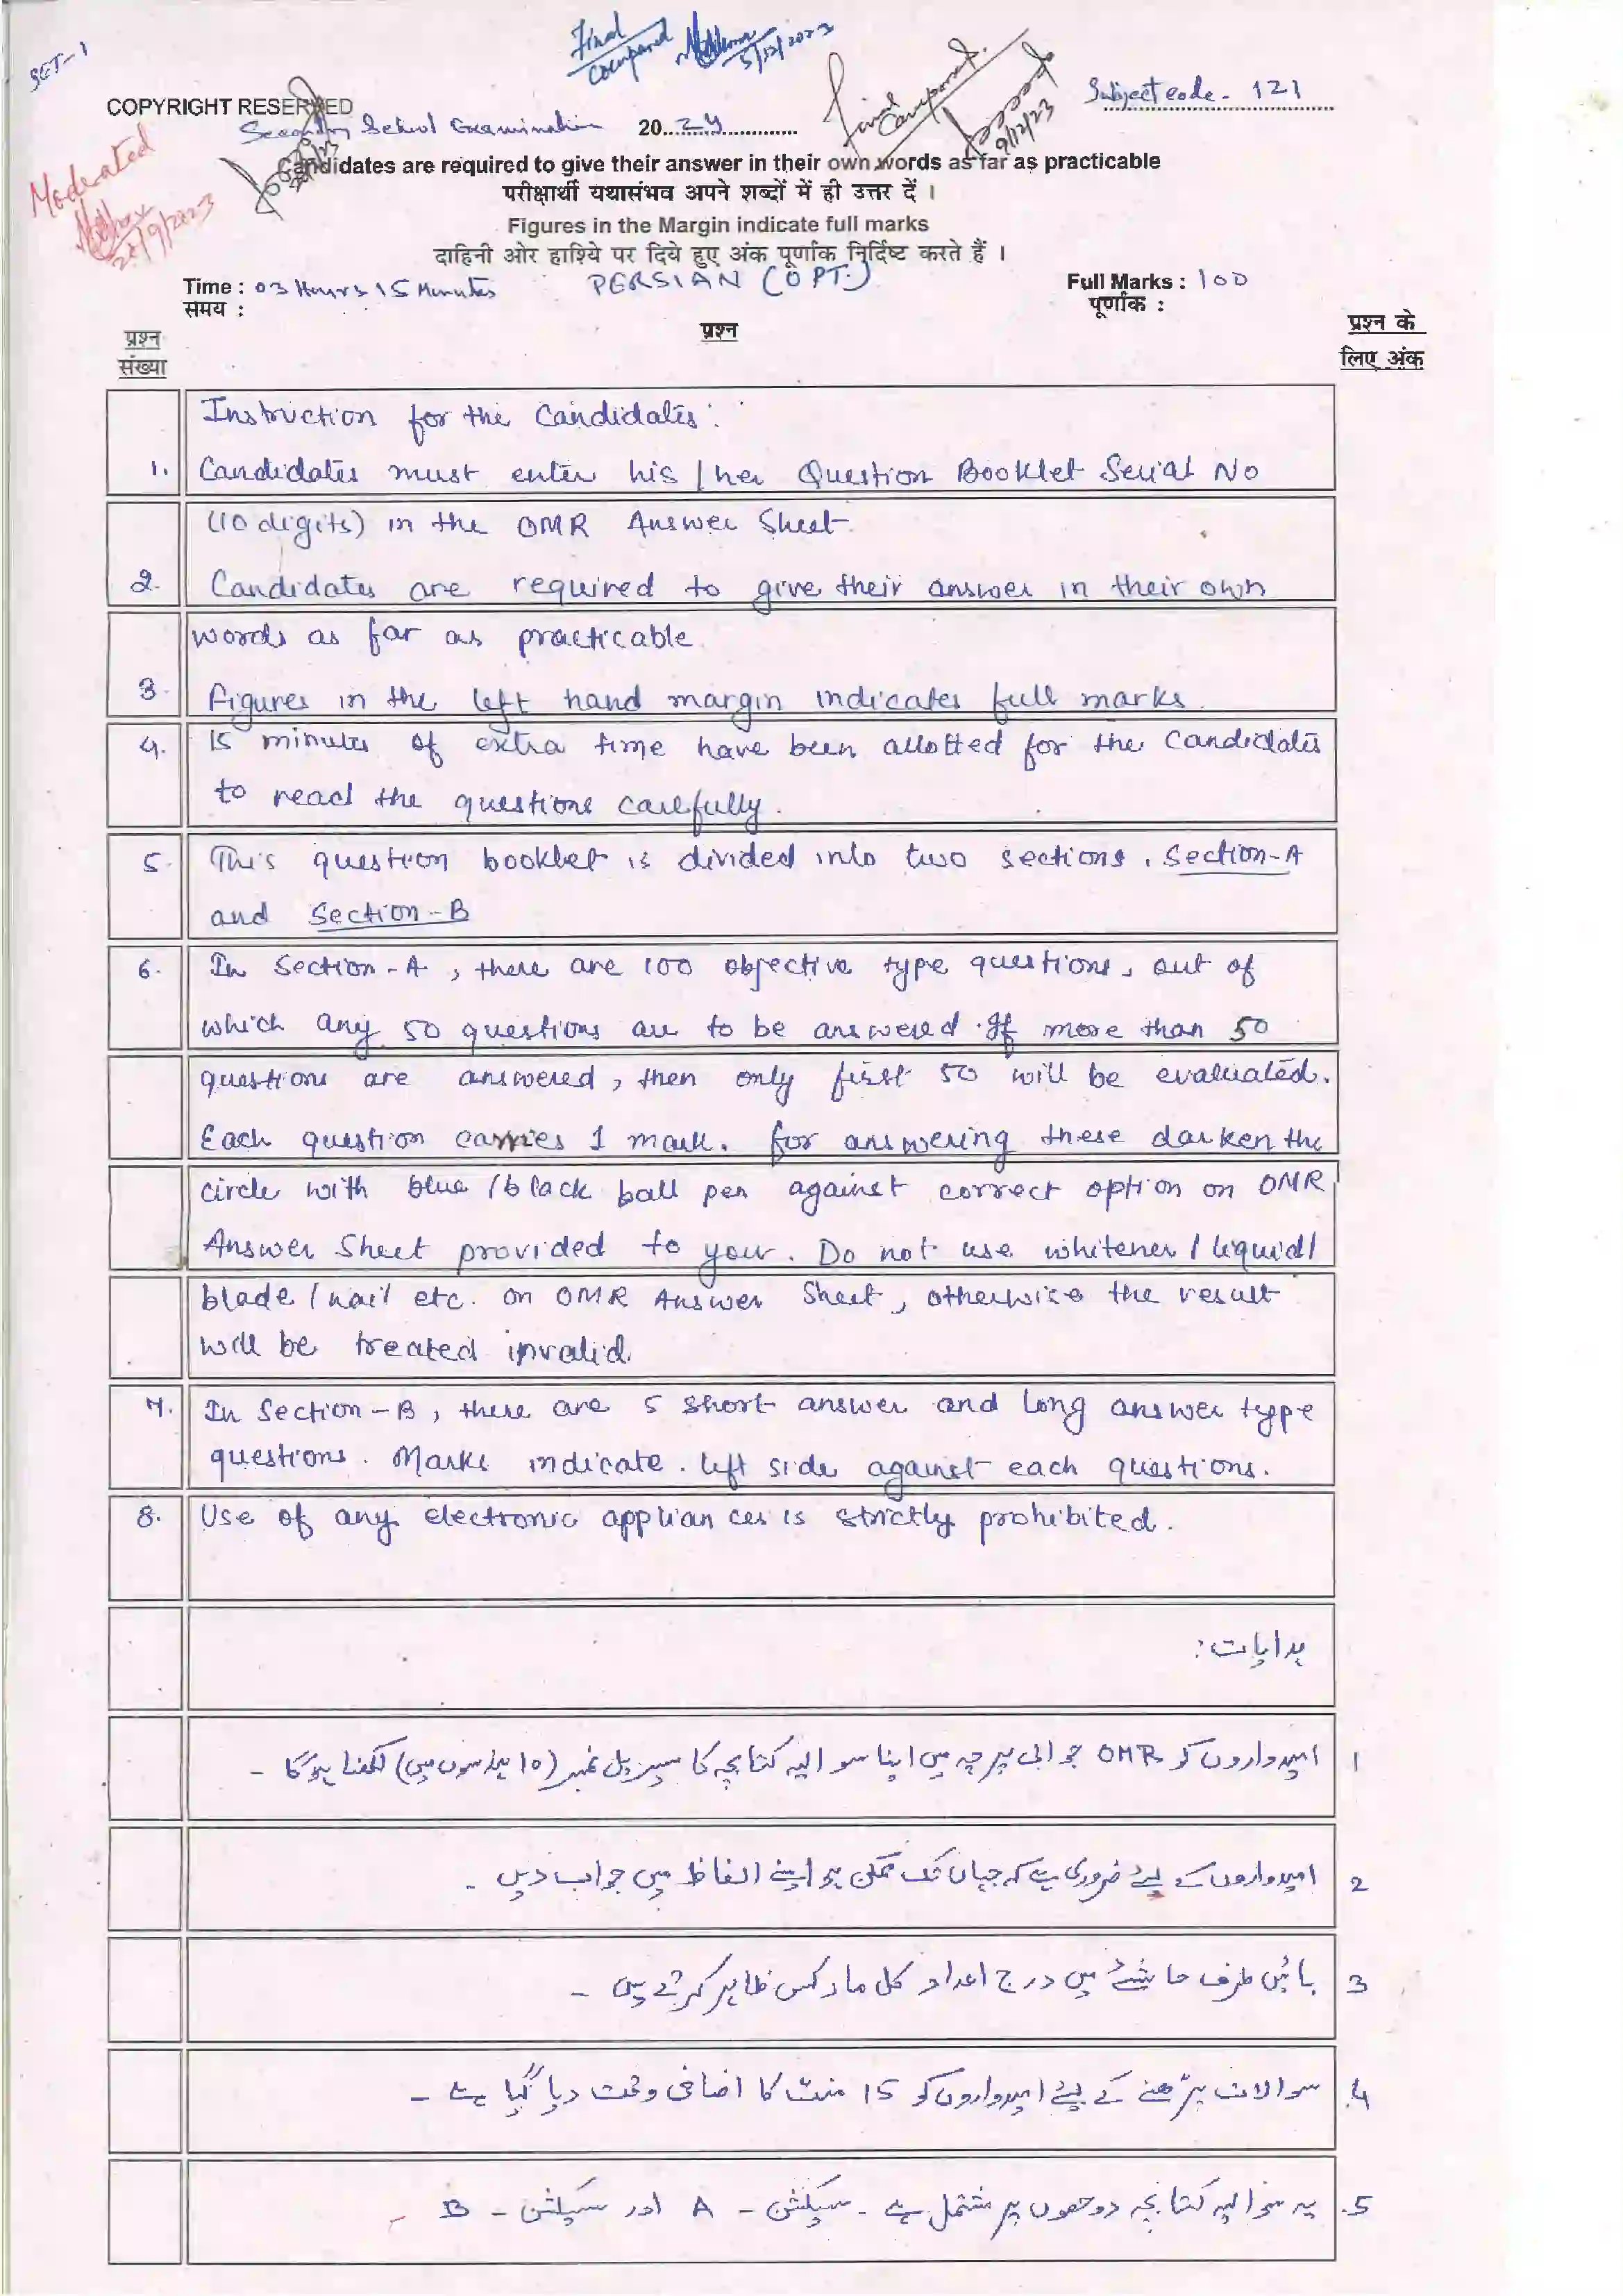 SET-1
Final
Compared
5/12/2023
Final
Compared
9/12/23
Subject code - 121
COPYRIGHT RESERVED
Secondary School Examination 2024
Moderated
Candidates are required to give their answer in their own words as far as practicable
परीक्षार्थी यथासंभव अपने शब्दों में ही उत्तर दें ।
Figures in the Margin indicate full marks
दाहिनी ओर हाशिये पर दिये हुए अंक पूर्णांक निर्दिष्ट करते हैं ।
Time : 03 Hours 15 Minutes PERSIAN (OPT.) Full Marks : 100
समय : पूर्णांक :
प्रश्न संख्या
प्रश्न
प्रश्न के लिए अंक
Instruction for the Candidates:
1. Candidates must enter his / her Question Booklet Serial No
(10 digits) in the OMR Answer Sheet.
2. Candidates are required to give their answer in their own
words as far as practicable.
3. Figures in the left hand margin indicates full marks.
4. 15 minutes of extra time have been allotted for the candidates
to read the questions carefully.
5. This question booklet is divided into two sections, Section-A
and Section-B
6. In Section-A, there are 100 objective type questions, out of
which any 50 questions are to be answered. If more than 50
questions are answered, then only first 50 will be evaluated.
Each question carries 1 mark. For answering these darken the
circle with blue / black ball pen against correct option on OMR
Answer Sheet provided to your. Do not use whitener / liquid /
blade / nail etc. on OMR Answer Sheet, otherwise the result
will be treated invalid.
7. In Section-B, there are 5 short answer and long answer type
questions. Marks indicate. left side against each questions.
8. Use of any electronic appliances is strictly prohibited.
ہدایات:
1 امیدواروں کو OMR جوابی پرچہ میں اپنا سوالیہ کتابچہ کا سیریل نمبر (10 ہندسوں میں) لکھنا ہوگا -
2 امیدواروں کے لیے ضروری ہے کہ جہاں تک ممکن ہو اپنے الفاظ میں جواب دیں -
3 بائیں طرف حاشیے میں درج اعداد کل مارکس ظاہر کرتے ہیں -
4. سوالات پڑھنے کے لیے امیدواروں کو 15 منٹ کا اضافی وقت دیا گیا ہے -
5. یہ سوالیہ کتابچہ دو حصوں پر مشتمل ہے - سیکشن - A اور سیکشن - B -